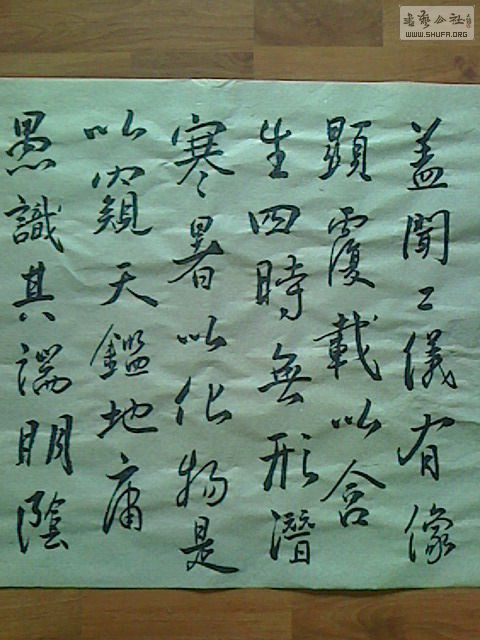 盖聞二儀有像
顯覆載以含
生四時無形潛
寒暑以化物是
以窺天鑑地庸
愚識其端明陰
书艺公社
WWW.SHUFA.ORG